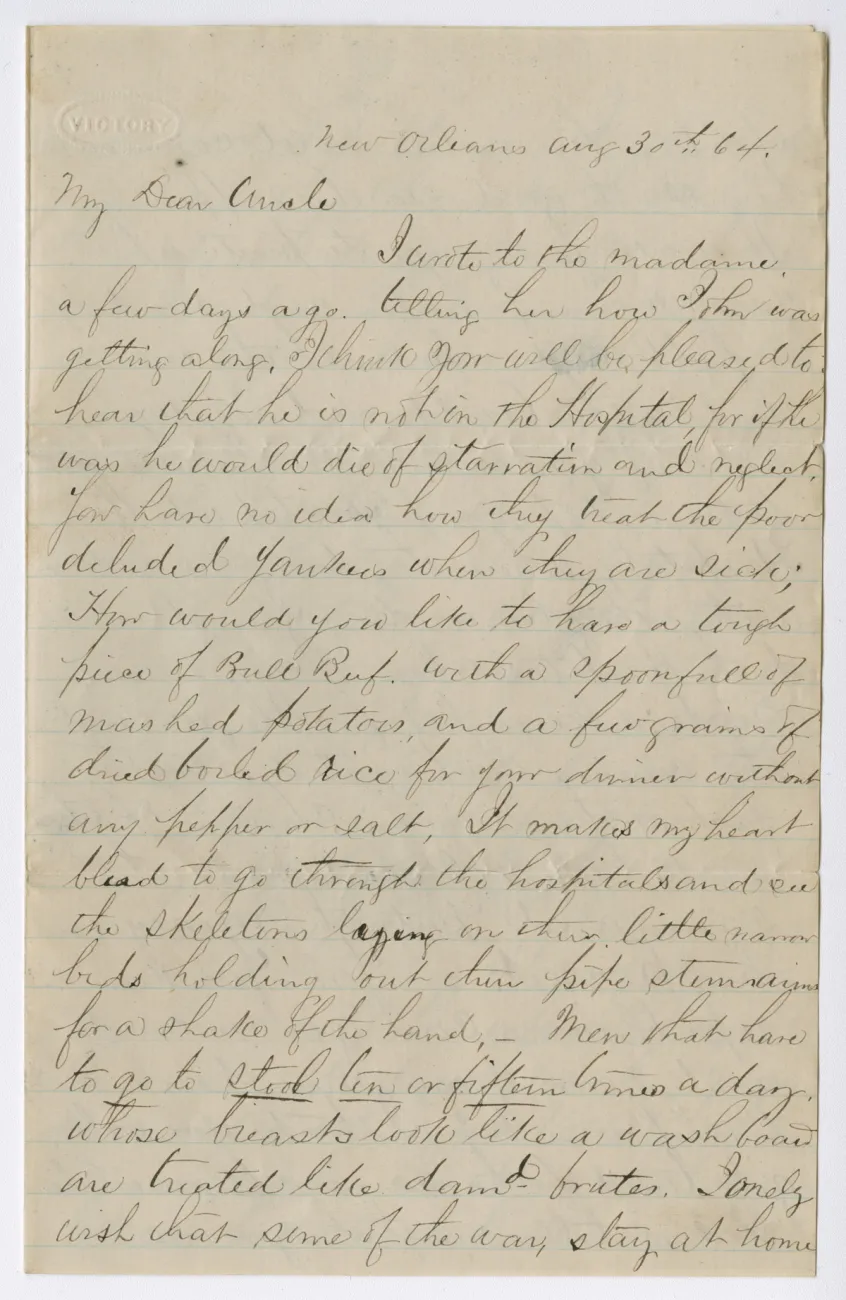 VICTORY
New Orleans Aug 30th 64.
My Dear Uncle
I wrote to the madame,
a few days ago. telling her how John was
getting along, I think You will be pleased to
hear that he is not in the Hospital, for if he
was he would die of starvation and neglect.
You have no idea how they treat the poor
deluded Yankees when they are sick;
How would you like to have a tough
piece of Bull Beef. with a spoonfull of
mashed potatoes, and a few grains of
dried boiled rice for your dinner without
any pepper or salt, It makes my heart
bleed to go through the hospitals and see
the skeletons laying on their little narrow
beds holding out their pipe stem arms
for a shake of the hand, – Men that have
to go to stool ten or fifteen times a day,
whose breasts look like a wash board
are treated like damd brutes. I onely
wish that some of the war, stay at home